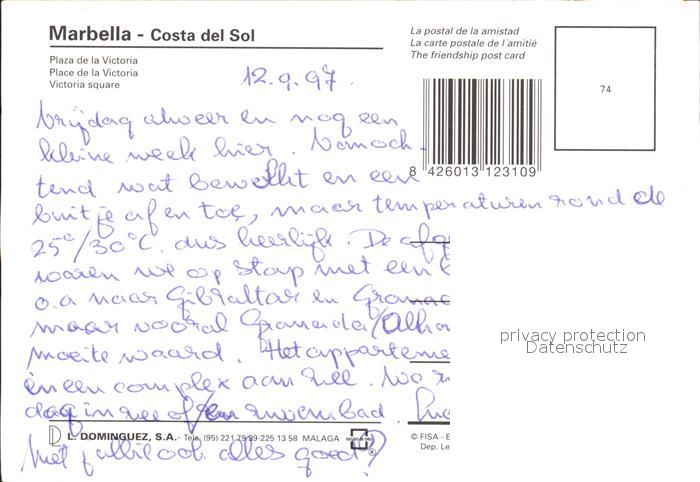 Marbella - Costa del Sol
Plaza de la Victoria
Place de la Victoria
Victoria square
La postal de la amistad
La carte postale de l'amitié
The friendship post card
74
8 426013 123109
12.9.97.
Vrijdag alweer en nog een
kleine week hier. Vanoch-
tend wat bewolkt en een
buitje af en toe, maar temperaturen rond de
25°/30°C. dus heerlijk. De afg
waren we op stap met een
o.a naar Gibraltar en Grana
maar vooral Granada/Alha
moeite waard. Het apparteme
in een complex aan zee. We
dag in zee of/en zwembad.
Met jullie ook alles goed?
privacy protection
Datenschutz
L. DOMINGUEZ, S.A. - Telé. (95) 221 79 39-225 13 58 MALAGA
© FISA - E
Dep. Le